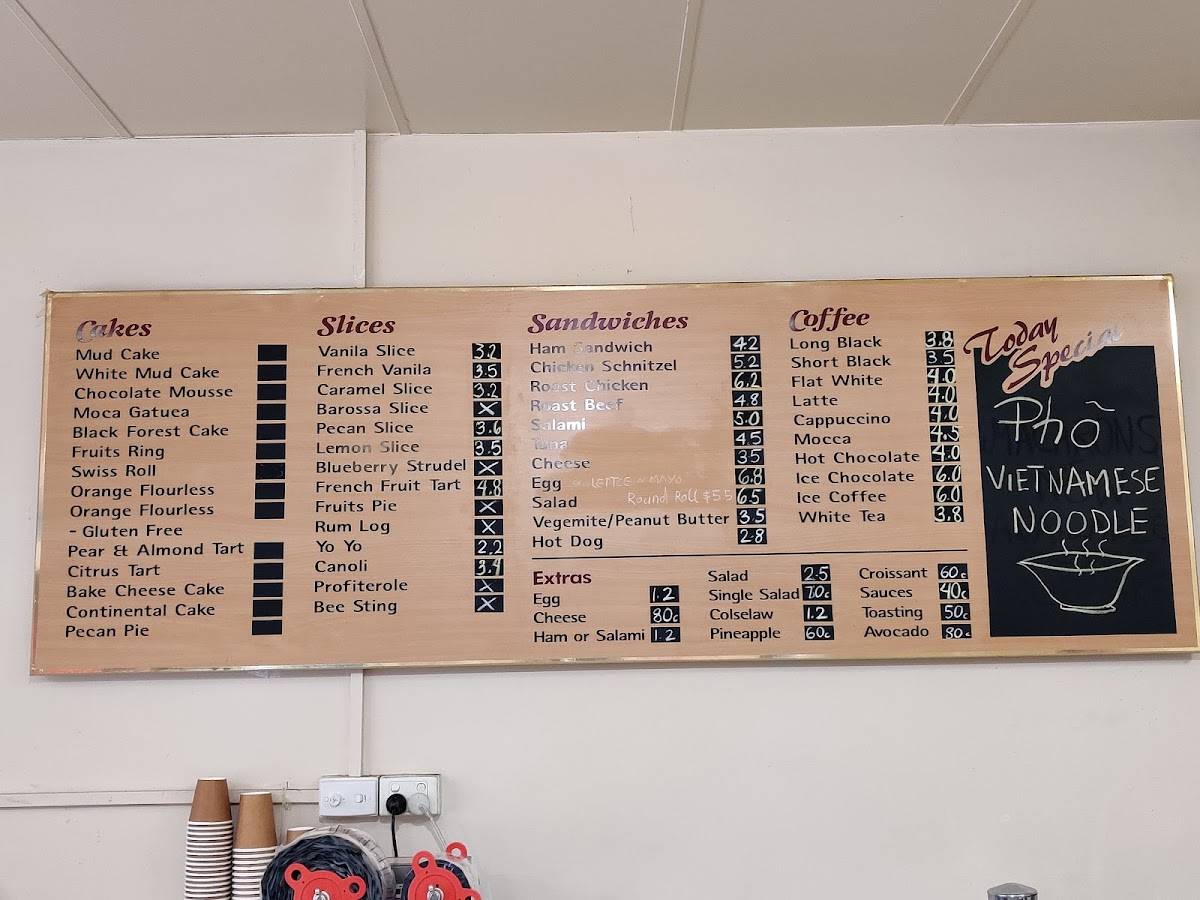 Cakes
Mud Cake
White Mud Cake
Chocolate Mousse
Moca Gatuea
Black Forest Cake
Fruits Ring
Swiss Roll
Orange Flourless
Orange Flourless
- Gluten Free
Pear & Almond Tart
Citrus Tart
Bake Cheese Cake
Continental Cake
Pecan Pie
Slices
Vanila Slice 3.2
French Vanila 3.5
Caramel Slice 3.2
Barossa Slice X
Pecan Slice 3.6
Lemon Slice 3.5
Blueberry Strudel X
French Fruit Tart 4.8
Fruits Pie X
Rum Log X
Yo Yo 2.2
Canoli 3.4
Profiterole X
Bee Sting X
Sandwiches
Ham Sandwich 4.2
Chicken Schnitzel 5.2
Roast Chicken 6.2
Roast Beef 4.8
Salami 5.0
Tuna 4.5
Cheese 3.5
Egg LETTCE MAYO 6.8
Salad Round Roll $5.5 6.5
Vegemite/Peanut Butter 3.5
Hot Dog 2.8
Extras
Egg 1.2
Cheese 80c
Ham or Salami 1.2
Salad 2.5
Single Salad 70c
Colselaw 1.2
Pineapple 60c
Croissant 60c
Sauces 40c
Toasting 50c
Avocado 80c
Coffee
Long Black 3.8
Short Black 3.5
Flat White 4.0
Latte 4.0
Cappuccino 4.0
Mocca 4.5
Hot Chocolate 4.0
Ice Chocolate 6.0
Ice Coffee 6.0
White Tea 3.8
Today
Special
Phõ
VIETNAMESE
NOODLE